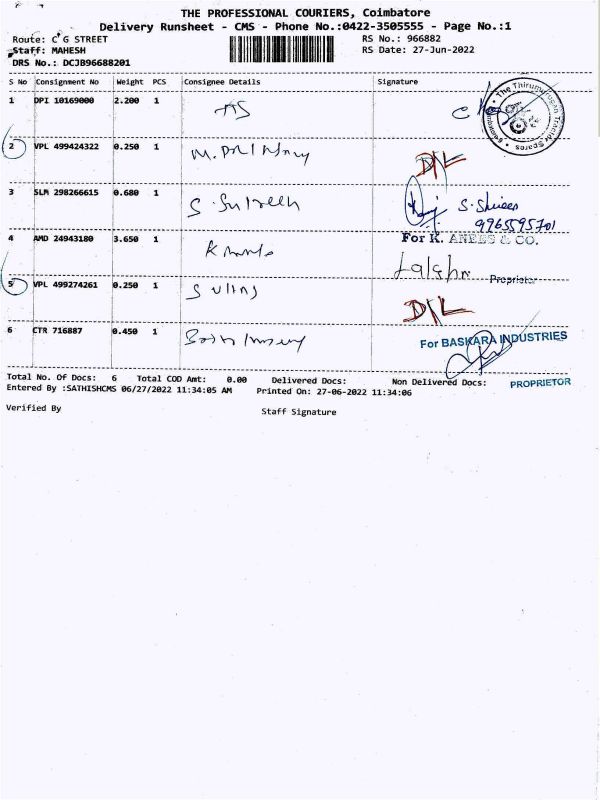 THE PROFESSIONAL COURIERS, Coimbatore
Delivery Runsheet - CMS - Phone No.:0422-3505555 - Page No.:1
Route: C G STREET
RS No.: 966882
Staff: MAHESH
RS Date: 27-Jun-2022
DRS No.: DCJB96688201
S No Consignment No Weight PCS Consignee Details Signature
1 DPI 10169000 2.200 1
2 VPL 499424322 0.250 1
D/L
3 SLM 298266615 0.680 1
9965595701
4 AMD 24943180 3.650 1
For K. ANEES & CO.
Proprietor
5 VPL 499274261 0.250 1
D/L
6 CTR 716887 0.450 1
For BASKARA INDUSTRIES
PROPRIETOR
Total No. Of Docs: 6 Total COD Amt: 0.00 Delivered Docs: Non Delivered Docs:
Entered By :SATHISHCMS 06/27/2022 11:34:05 AM Printed On: 27-06-2022 11:34:06
Verified By Staff Signature